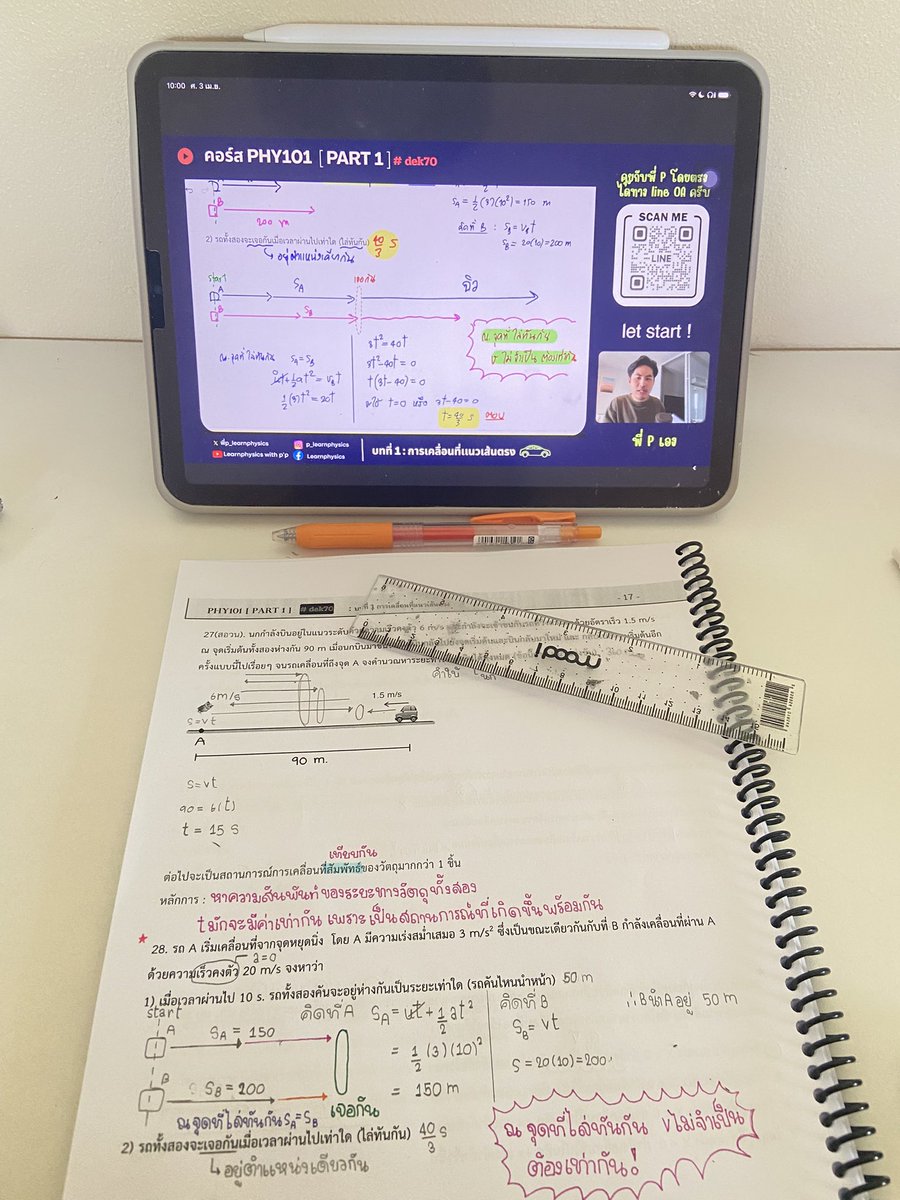 10:00 ศ. 3 เม.ย.
คอร์ส PHY101 [PART 1] # dek70
คุยกับพี่ P โดยตรง
ได้ทาง line OA ครับ
SCAN ME
LINE
let start !
พี่ P เอง
B
200 m
S_A = ½(3)(10²) = 150 m
คิดที่ B : S_B = V_B t
S_B = 20(10) = 200 m
2) รถทั้งสองจะเจอกันเมื่อเวลาผ่านไปเท่าใด (ไล่ทันกัน) 40/3 s
↳ อยู่ตำแหน่งเดียวกัน
start
A
S_A
เจอกัน
B
S_B
ณ จุดที่ไล่ทันกัน S_A = S_B
ut + ½at² = V_B t
½(3)t² = 20t
3t² = 40t
3t² - 40t = 0
t(3t - 40) = 0
จะได้ t = 0 หรือ 3t - 40 = 0
t = 40/3 s ตอบ
ณ จุดที่ไล่ทันกัน
v ไม่จำเป็นต้องเท่ากัน
X พี่p_learnphysics
p_learnphysics
Learnphysics with p'p
Learnphysics
บทที่ 1 : การเคลื่อนที่แนวเส้นตรง
PHY101 [ PART 1 ] # dek70 : บทที่ 1 การเคลื่อนที่แนวเส้นตรง
- 17 -
27(สอวน). นกกำลังบินอยู่ในแนวระดับด้วย 6 m/s ด้วยอัตราเร็ว 1.5 m/s
ณ จุดเริ่มต้นทั้งสองห่างกัน 90 m เมื่อนกบิน
ครั้งแบบนี้ไปเรื่อยๆ จนรถเคลื่อนที่ถึงจุด A จงคำนวณหาระยะ
mood!
6 m/s
1.5 m/s
s=vt
A
90 m.
s=vt
90 = 6(t)
t = 15 s
เทียบกัน
ต่อไปจะเป็นสถานการณ์การเคลื่อนที่สัมพัทธ์ของวัตถุมากกว่า 1 ชิ้น
หลักการ : หาความสัมพันธ์ของระยะทางวัตถุทั้งสอง
t มักจะมีค่าเท่ากัน เพราะเป็นสถานการณ์ที่เกิดขึ้นพร้อมกัน
★ 28. รถ A เริ่มเคลื่อนที่จากจุดหยุดนิ่ง โดย A มีความเร่งสม่ำเสมอ 3 m/s² ซึ่งเป็นขณะเดียวกันกับที่ B กำลังเคลื่อนที่ผ่าน A
a=0
ด้วยความเร็วคงตัว 20 m/s จงหาว่า
1) เมื่อเวลาผ่านไป 10 s. รถทั้งสองคันจะอยู่ห่างกันเป็นระยะเท่าใด (รถคันไหนนำหน้า) 50 m
start
A
S_A = 150
B
S_B = 200
เจอกัน
ณ จุดที่ไล่ทันกัน S_A = S_B
คิดที่ A S_A = ut + ½at²
= ½(3)(10)²
= 150 m
คิดที่ B
S_B = vt
S = 20(10) = 200
∴ B นำ A อยู่ 50 m
2) รถทั้งสองจะเจอกันเมื่อเวลาผ่านไปเท่าใด (ไล่ทันกัน) 40/3 s
↳ อยู่ตำแหน่งเดียวกัน
ณ จุดที่ไล่ทันกัน v ไม่จำเป็น
ต้องเท่ากัน!